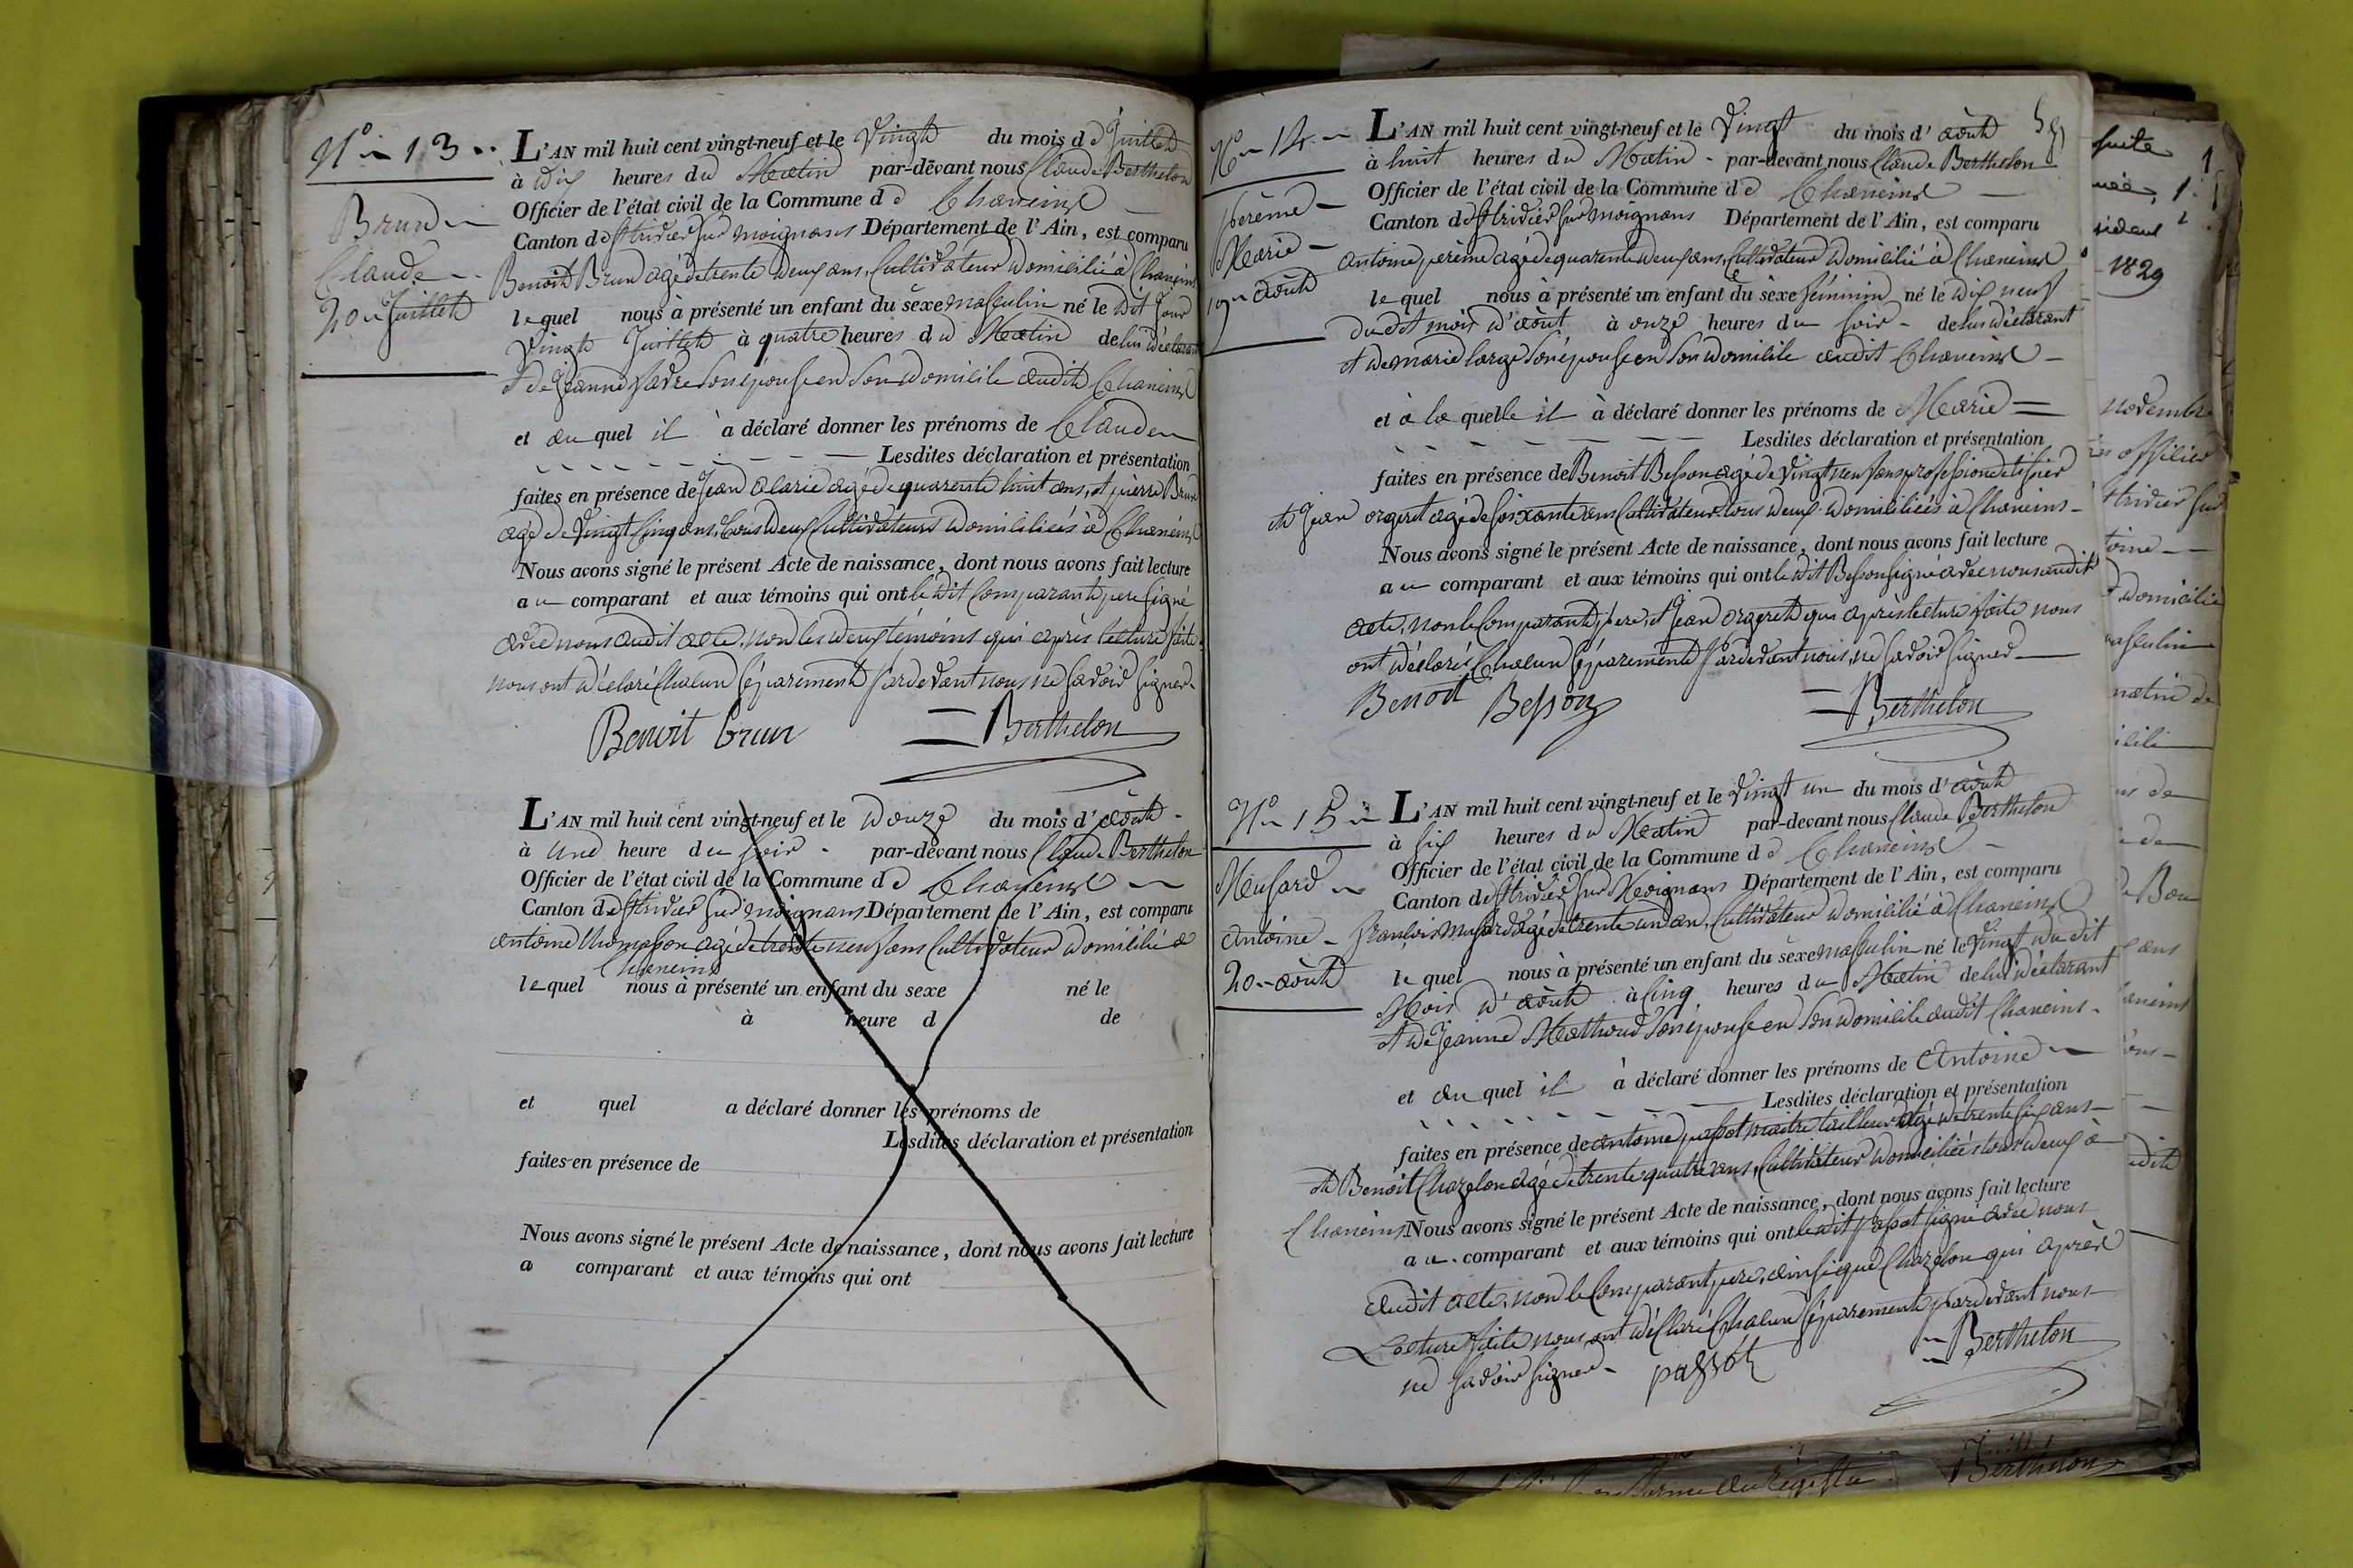 N° 13
Brun
Claude
20 Juillet
L'AN mil huit cent vingt-neuf et le Vingt du mois de Juillet
à dix heures du Matin par-devant nous Claude Berthelon
Officier de l'état civil de la Commune de Chaneins
Canton de St trivier sur moignans Département de l'Ain, est comparu
Benoit Brun agé de trente deux ans, Cultivateur domicilié à Chaneins
lequel nous à présenté un enfant du sèxe masculin né le dit Jour
Vingt Juillet à quatre heures du Matin de lui déclarant
et de Jeanne favre son épouse en son domicile audit Chaneins
et au quel il à déclaré donner les prénoms de Claude
Lesdites déclaration et présentation
faites en présence de Jean alarie agé de quarente huit ans, et pierre Brun
agé de Vingt Cinq ans, tous deux Cultivateurs domiciliés à Chaneins
Nous avons signé le présent Acte de naissance, dont nous avons fait lecture
au comparant et aux témoins qui ont le dit Comparant pere signé
avec nous audit acte, non les deux témoins qui après lecture faite
nous ont déclaré Chacun séparement pardevant nous ne savoir signer
Benoit brun Berthelon
L'AN mil huit cent vingt-neuf et le douze du mois d'août
à Une heure du soir par-devant nous Claude Berthelon
Officier de l'état civil de la Commune de Chaneins
Canton de St trivier sur moignans Département de l'Ain, est comparu
antoine thomasson agé de trente neuf ans Cultivateur domicilié à
Chaneins
lequel nous à présenté un enfant du sexe né le
à heure d de
et quel a déclaré donner les prénoms de
Lesdites déclaration et présentation
faites en présence de
Nous avons signé le présent Acte de naissance, dont nous avons fait lecture
a comparant et aux témoins qui ont
N° 14
perème
Marie
19 août
L'AN mil huit cent vingt-neuf et le Vingt du mois d'août
à huit heures du Matin par-devant nous Claude Berthelon
Officier de l'état civil de la Commune de Chaneins
Canton de St trivier sur moignans Département de l'Ain, est comparu
antoine perème agé de quarente deux ans, Cultivateur domicilié à Chaneins
lequel nous à présenté un enfant du sèxe féminin né le dix neuf
du dit mois d'août à onze heures du soir de lui déclarant
et de marie large son épouse en son domicile audit Chaneins
et à la quelle il à déclaré donner les prénoms de Marie
Lesdites déclaration et présentation
faites en présence de Benoit Besson agé de Vingt neuf ans profession de tissier
et Jean orgeret agé de soixante ans Cultivateur tous deux domiciliés à Chaneins
Nous avons signé le présent Acte de naissance, dont nous avons fait lecture
au comparant et aux témoins qui ont le dit Besson signé avec nous audit
acte, non le Comparant pere, et Jean orgeret qui après lecture faite nous
ont déclaré Chacun séparement pardevant nous, ne savoir signer
Benoit Besson Berthelon
N° 15
Musard
Antoine
20 août
L'AN mil huit cent vingt-neuf et le Vingt un du mois d'août
à six heures du Matin par-devant nous Claude Berthelon
Officier de l'état civil de la Commune de Chaneins
Canton de St trivier sur Moignans Département de l'Ain, est comparu
françois musard agé de trente un an, Cultivateur domicilié à Chaneins
lequel nous à présenté un enfant du sèxe masculin né le Vingt du dit
Mois d'août à Cinq heures du Matin de lui déclarant
et de Jeanne Mathoud son épouse en son domicile audit Chaneins
et au quel il à déclaré donner les prénoms de Antoine
Lesdites déclaration et présentation
faites en présence de antoine passot maitre tailleur agé de trente six ans
et Benoit Chazelon agé de trente quatre ans, Cultivateur domiciliés tous deux à
Chaneins Nous avons signé le présent Acte de naissance, dont nous avons fait lecture
au comparant et aux témoins qui ont le dit passot signé avec nous
audit acte, non le Comparant pere, ainsi que Chazelon qui après
Lecture faite nous ont déclaré Chacun séparement pardevant nous
ne savoir signer passot Berthelon
suite
1829
novembre
officier
trivier sur
domicilié
masculin
matin de
Berthelon